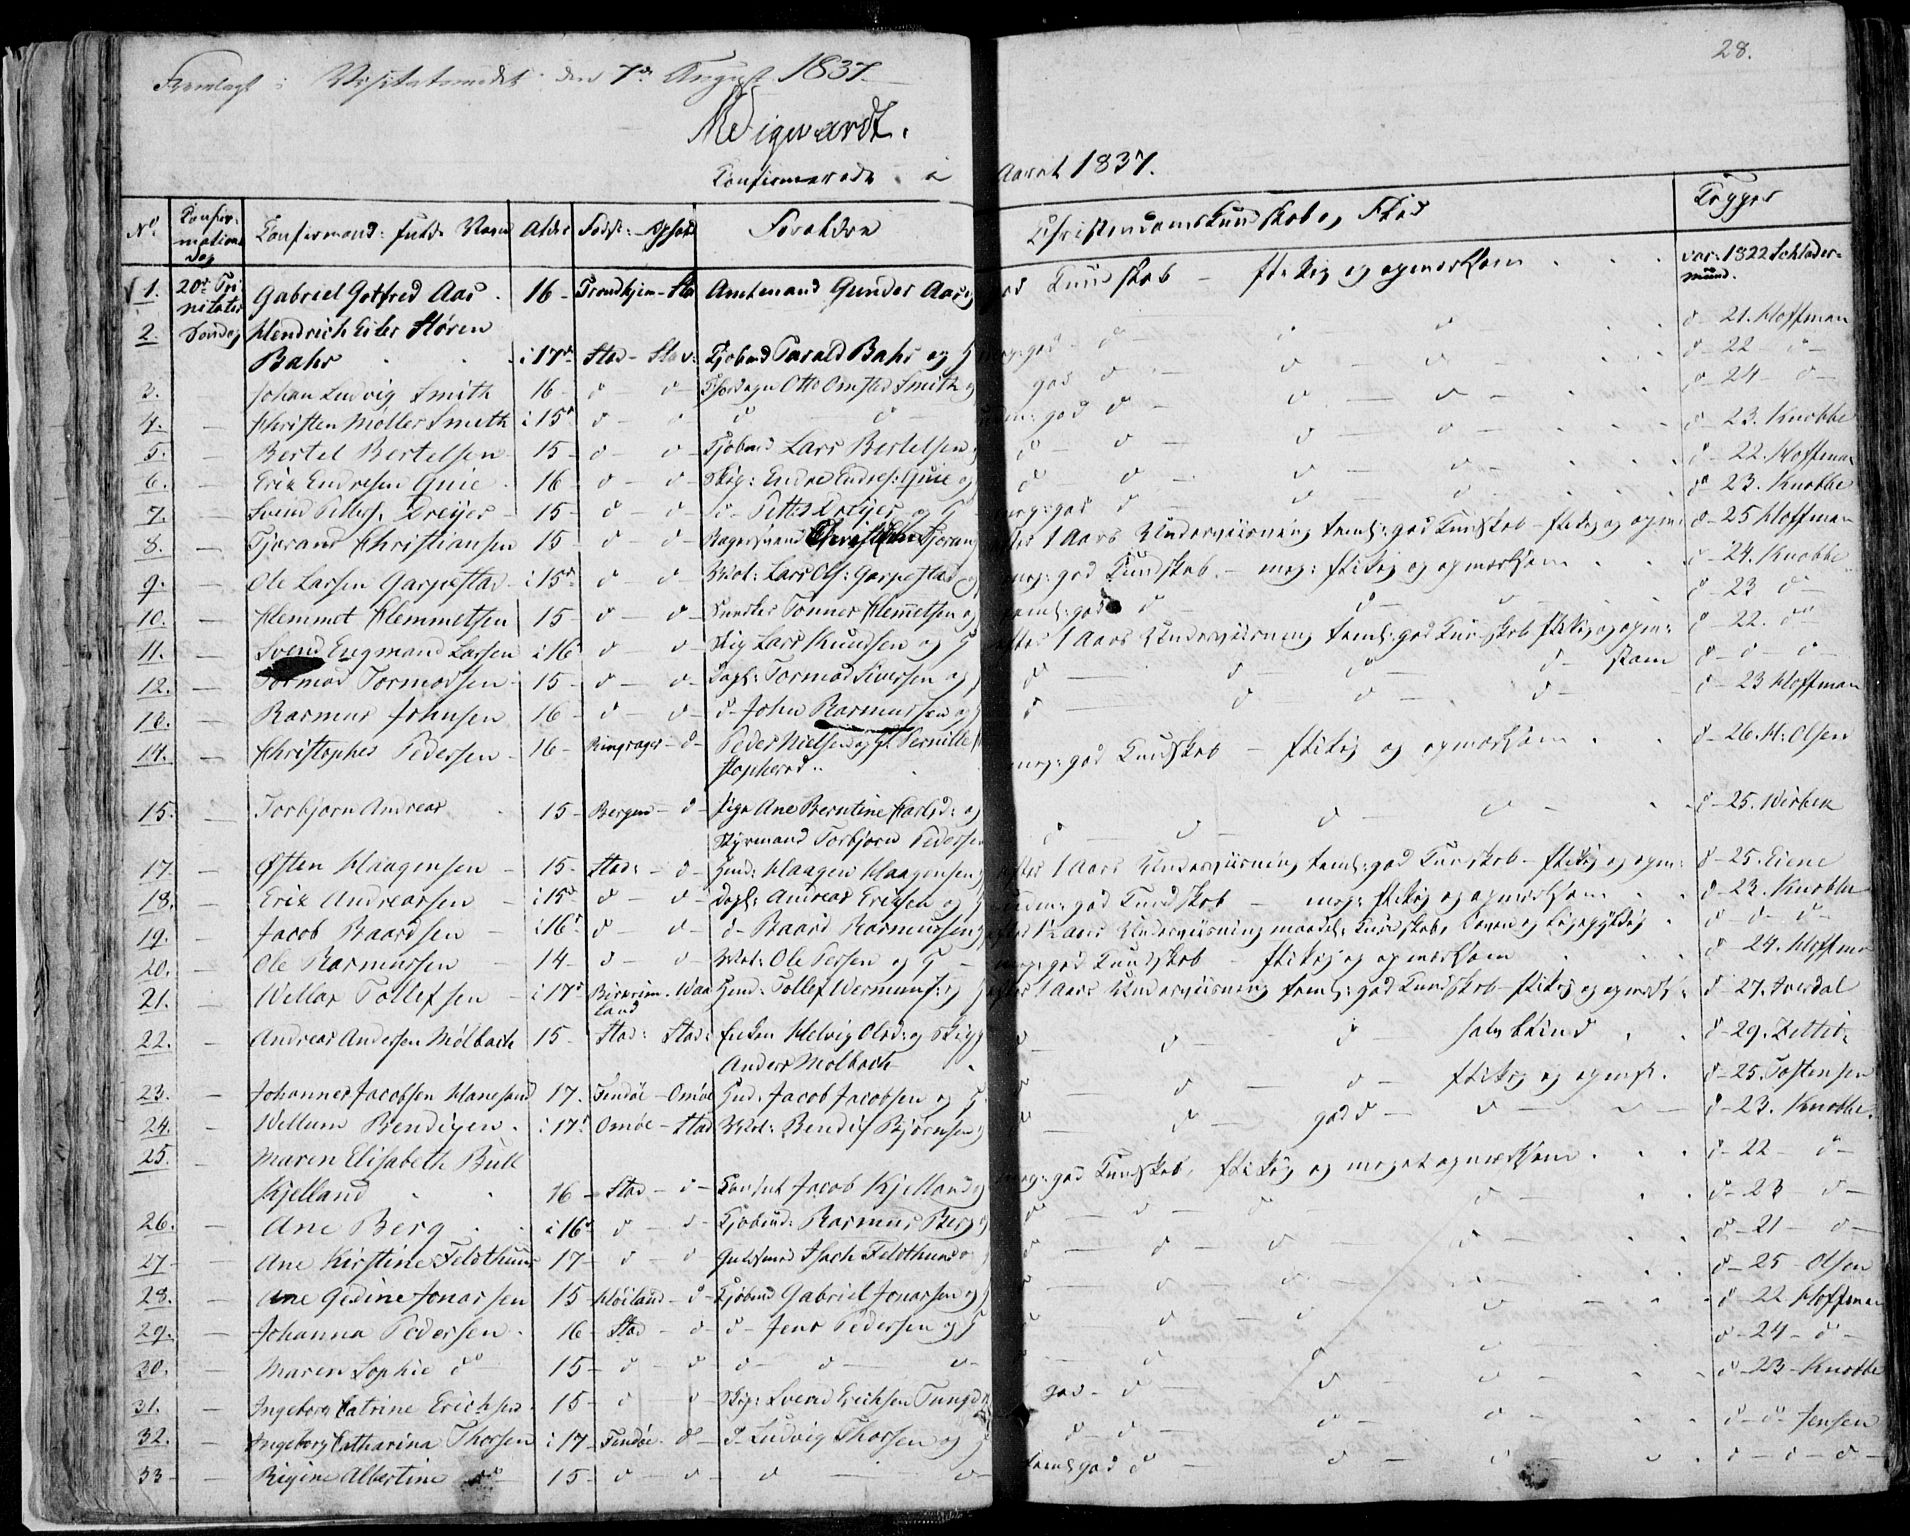 28.
Fremlagt i Visitatsmødet den 7de August 1837.
Wedigwardt.
Confirmerede i Aaret 1837.
No. Confirmations Dag Confirmand: fulde Navn Alder Føde- Opholds Forældre Christendoms Kundskab og Flid Copper
1. 20de Trinitatis Søndag Gabriel Gotfred Aas 16 Trondhjem - Stav Amtmand Gunder Aas og god Kundskab - flittig og opmærksom vac: 1822 Schlader-
münd.
2. Hendrich Eiler Støren
Bahr i 17de Stad - Stav: Kjøbmd Tarald Bahr og H meg: god d d d d - 21. Hoffman
3. Johan Ludvig Smith 16 d - d Otto Omsted Smith og god d d d d - 22 - d -
4. Christen Møller Smith i 15de d d d d god d d d d - 24 - d -
5. Bertel Bertelsen 15 - d - d Kjøbmd Lars Bertelsen d d d d d - 23. Knobbe
6. Erik Endresen Qvie 16 - d - d Skip: Endre Endres: Qvie og d d d d d - 22. Hoffman
7. Svend Petters: Dreyer 15 - d - d d - Petter Dreyer og H meg: god d d d d - 23. Knobbe
8. Tjorand Christiansen 15 - d - d Tjorand efter 1 Aars Underviisning teml: god Kundskab - flittig og opm: d - 25 Hoffman
9. Ole Larsen Garpestad i 15de d d Mat: Lars Ols: Garpestad og meg: god Kundskab - meg: flittig og opmærksom d - 24. Knobbe
10. Clemmet Clemmetsen 15 d d Tonnes Clemetsen og teml: god d d d d - 23 d -
11. Svend Engmand Larsen i 16 d d Skip Lars Knudsen og H efter 1 Aars Underviisning teml: god Kundskab flittig og opm: d - 22. d -
12. Tormod Tormodsen 15 - d - d Dagl: Tormod Siversen og d d d d som d - d - d -
13. Rasmus Johnsen 16 - d - d d - John Rasmussen og H d d d d d - 23 Hoffman
14. Christopher Pedersen 16 - Ringsager - d Peder Nielsen og H. Pernille
stophersd. meg: god Kundskab - flittig og opmærksom d - 26. H. Olsen
15. Torbjørn Andreas 15 - Bergen - d Pige Ane Berntine Carlsd: og
Styrmand Torbjørn Pedersen d d d d d - 25. Wirbek
17. Østen Haagensen 15 - Stad: - d - Haagen Haagensen efter 1 Aars Underviisning teml: god Kundskab - flittig og opm: d - 25. Eiene
18. Erik Andreassen i 15de d - d - Dagl: Andreas Eriksen og H god Kundskab - meg: flittig og opmærksom d - 23. Knobbe
19. Jacob Baardsen i 16de d - d - d - Baard Rasmussen efter Aars Underviisning maadel: Kundskab d d - d -
20. Ole Rasmussen 14 - d - d - Mat: Ole Persen og H meg: god Kundskab - flittig og opmærksom d - 24. Hoffman
21. Wellax Tollefsen i 17de Birkrim - Waaland Tollef Wermunds: og H efter 1 Aars Underviisning teml: god Kundskab flittig og opmærks: d - 27. Iversdal
22. Andreas Andersen Mølbach 15 - Stad: Stad: Enken Helvig Olsd: og
Anders Mølbach d d d halv blind d - 29. Zettit:
23. Johannes Jacobsen Hanesand 17. Findøe - Omøe Jacob Jacobsen og H d d flittig og opmks. d - 25. Tostensen
24. Wellum Bendixen i 17de Omøe - Stad Mat: Bendix Bjørnsen d god d d d - 23. Knobbe.
25. Maren Elisabeth Bull
Kjelland 16 - Stad - d - Consul Jacob Kjelland og meg: god Kundskab, flittig og meget opmærksom d - 22 - d -
26. Ane Berg i 16de d - d - Kjøbmd: Rasmus Berg og d d d d d - 23 d -
27. Ane Kirstine Feldthuus 17 - d - d Isach Feldthuus og d d d d d - 21 - d -
28. Ane Gedine Jonassen 15 - Høiland - d Kjøbmd Gabriel Jonassen og H d d d d d - 25 - Olsen
29. Johanna Pedersen 16 - Stad - d d - Jens Pedersen og H d d d d d - 22 Hoffman
30. Maren Sophie do 15 - d - d d - d - d - d d d d d - 24 - d -
31. Ingeborg Catrine Erichsen 15 - d - d Skip: Svend Erichsen god d d d d - 23 - Knobbe
32. Ingeborg Catharina Thorsen i 17 - Findøe - d d - Ludvig Thorsen og H d - d d d d - d - Jensen
33 Rigine Albertine do 15 - d - d - d - d teml: god d d d d d - d - d -